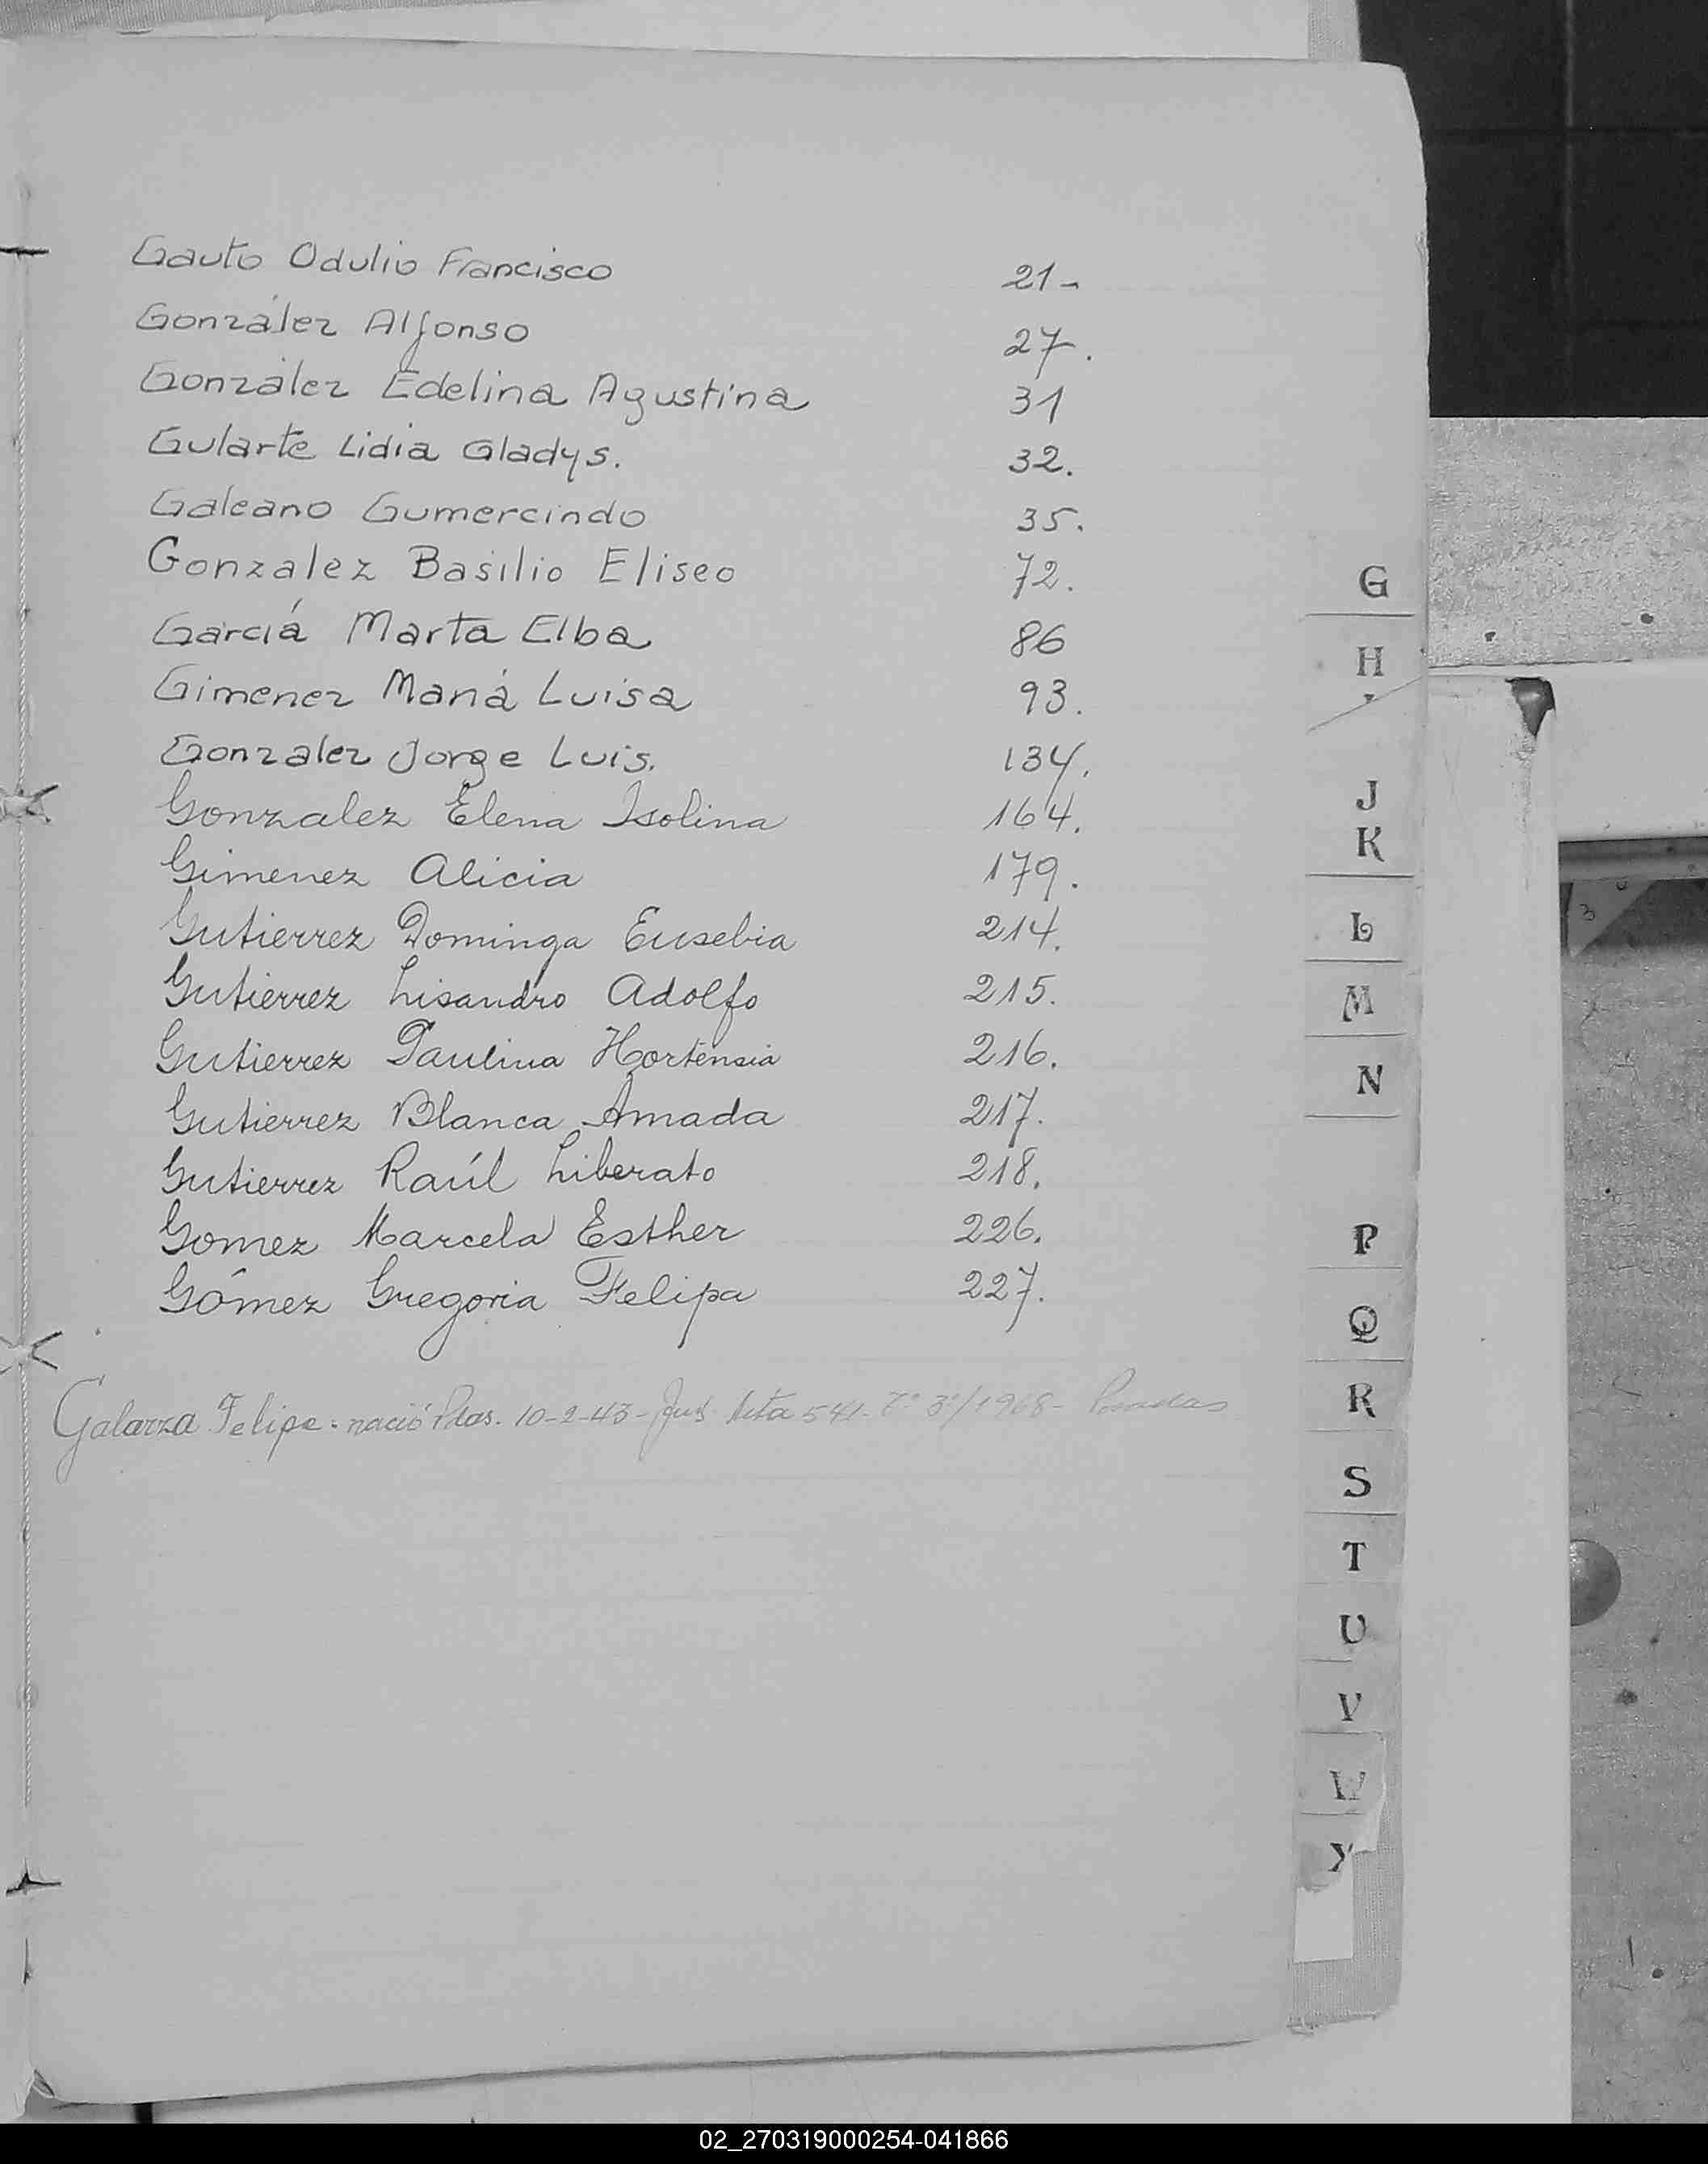 Gauto Odulio Francisco 21-
González Alfonso 27.
González Edelina Agustina 31
Gularte Lidia Gladys. 32.
Galeano Gumercindo 35.
Gonzalez Basilio Eliseo 72.
Garciá Marta Elba 86
Gimenez María Luisa 93.
Gonzalez Jorge Luis. 134.
Gonzalez Elena Isolina 164.
Gimenez Alicia 179.
Gutierrez Dominga Eusebia 214.
Gutierrez Lisandro Adolfo 215.
Gutierrez Paulina Hortensia 216.
Gutierrez Blanca Amada 217.
Gutierrez Raúl Liberato 218.
Gomez Marcela Esther 226.
Gómez Gregoria Felipa 227.
Galarza Felipe - nació Pdas. 10-2-43- Acta 541- Tº 3º/1968- Posadas
G
H
J
K
L
M
N
P
Q
R
S
T
U
V
W
Y
3
02_270319000254-041866